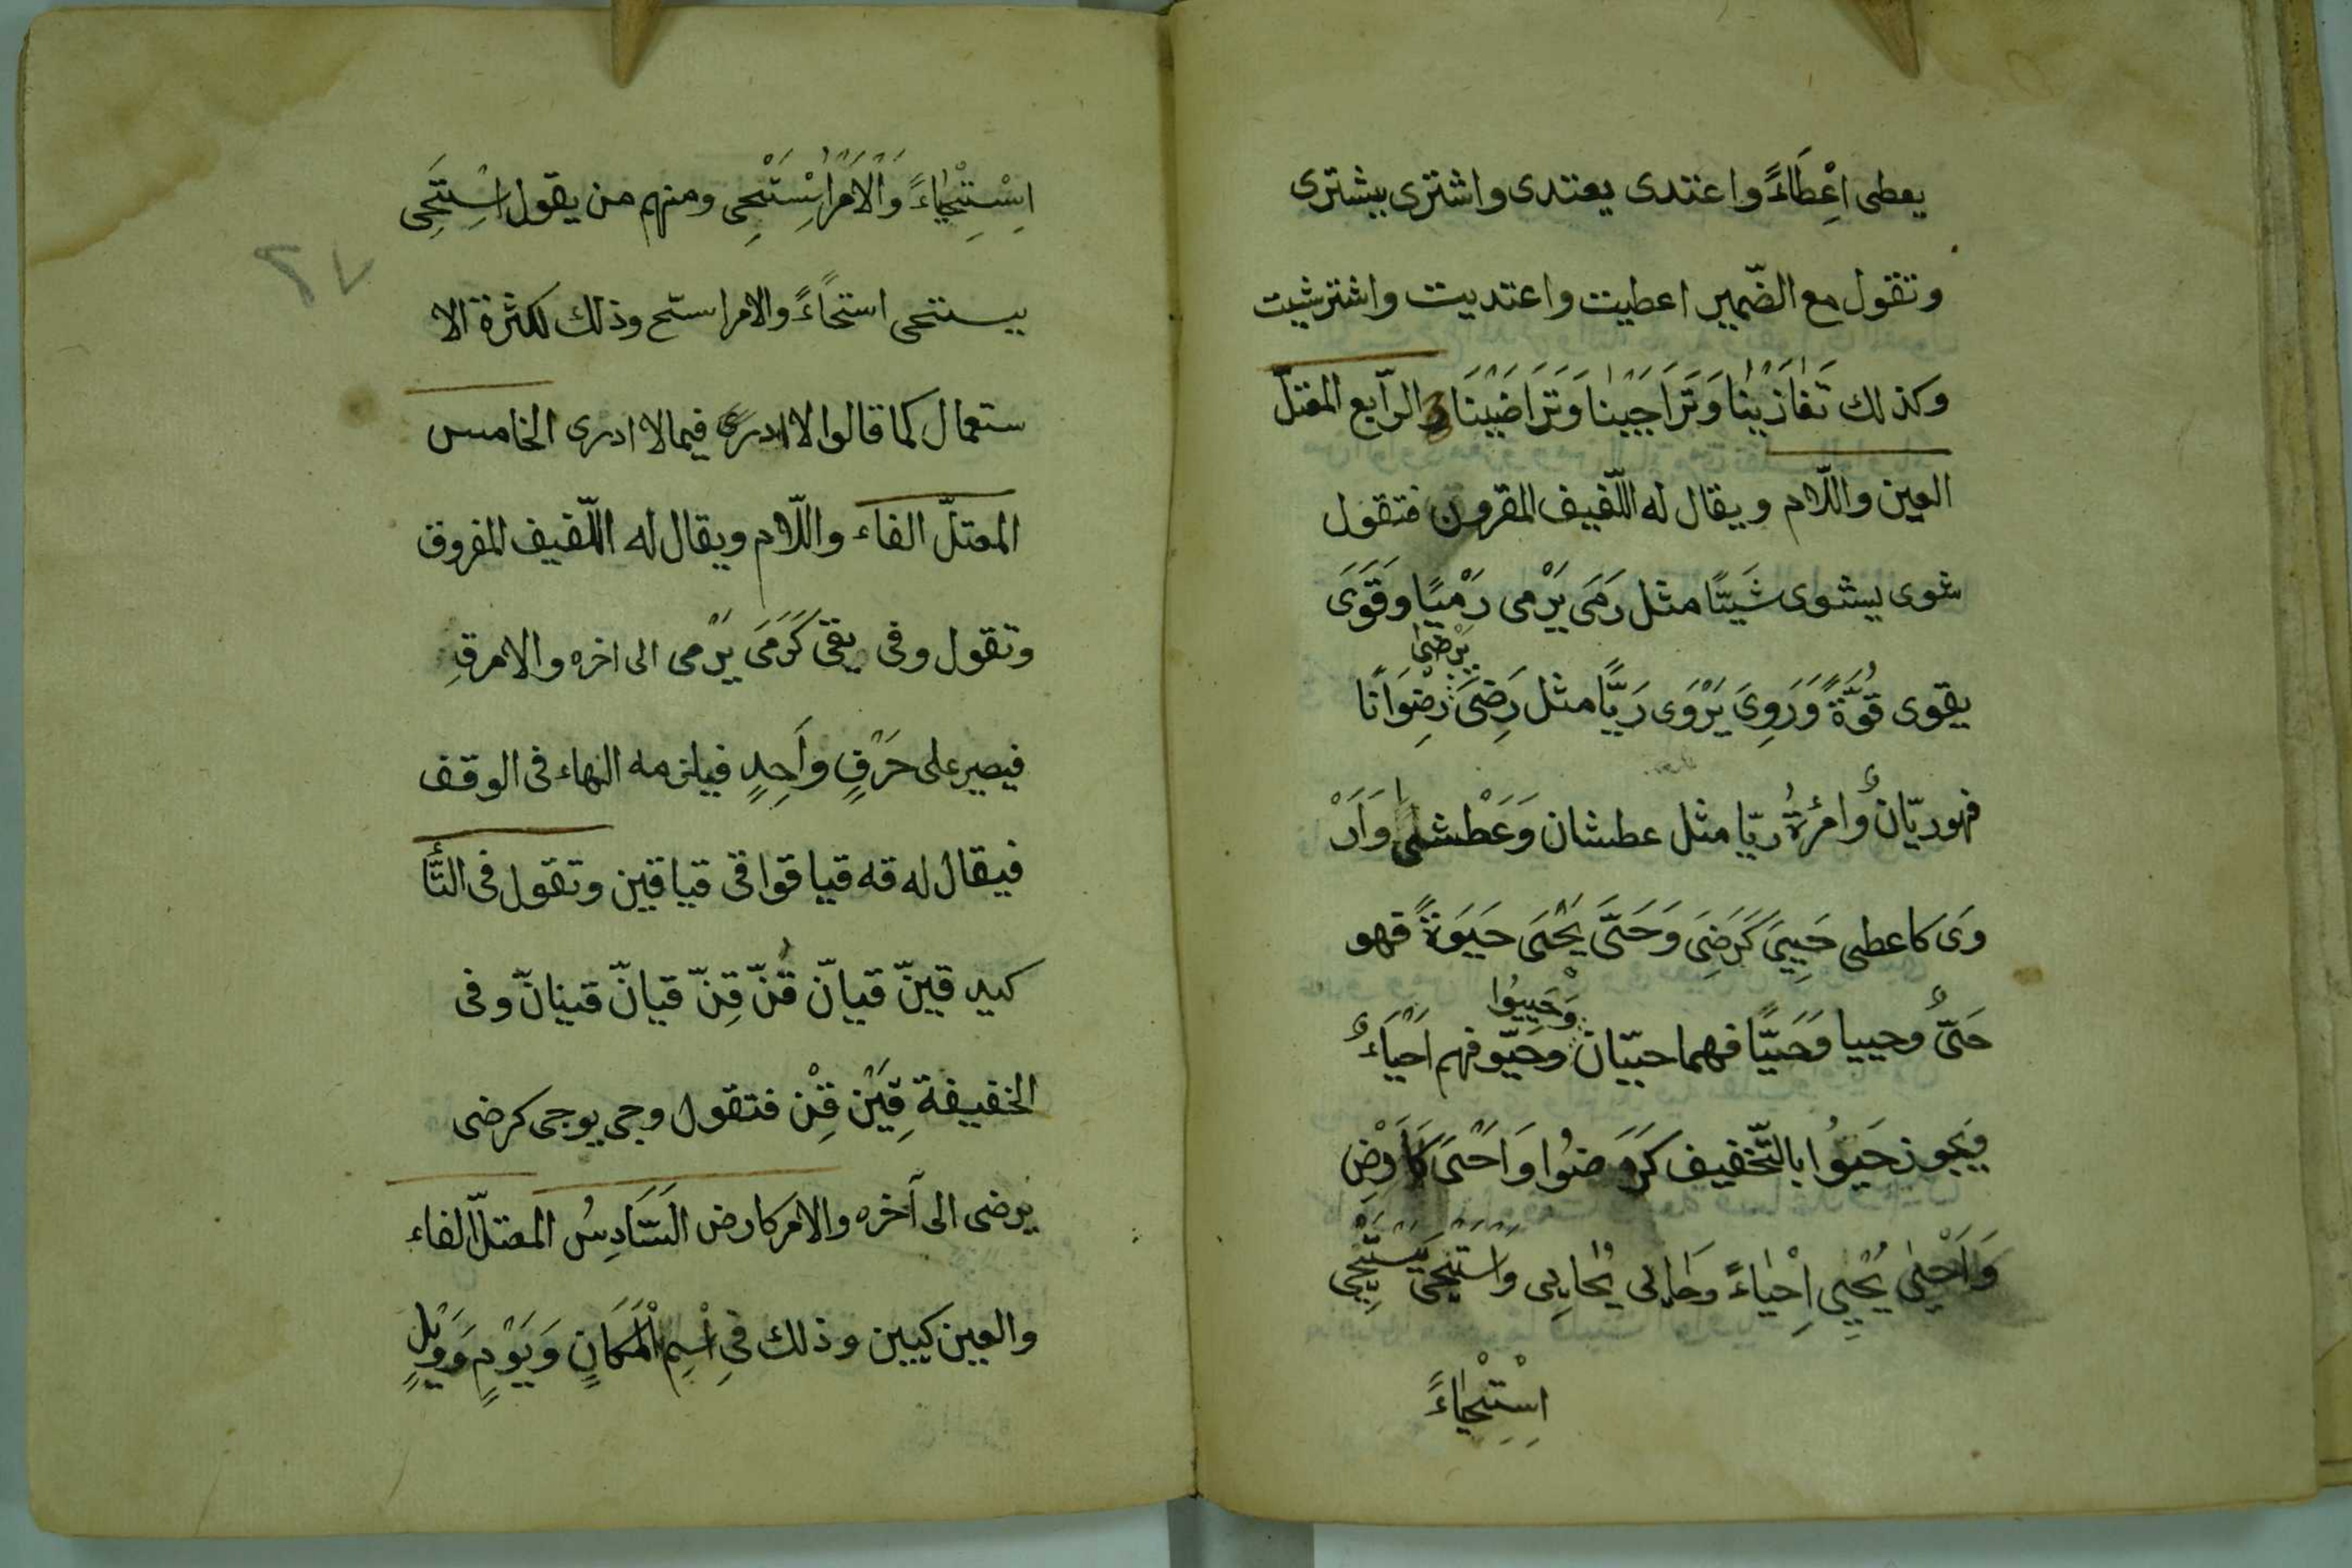 يعطى اِعْطَاءً واعتدى يعتدى واشترى يشترى
وتقول مع الضّمير اعطيت واعتديت واشتريت
وكذلك تَغَازَيْنَا وَتَرَاجَيْنَا وَتَرَاضَيْنَا والرّابع المعتلّ
العين واللّام ويقال له اللّفيف المقرون فتقول
شوى يشوى شَيًّا مثل رَمَى يَرْمى رَمْيًا وَقَوَىَ
يقوى قُوَّةً وَرَوِىَ يَرْوَى رَيًّا مثل رَضِىَ يَرْضىٰ رِضْوَانًا
فهو ريّانٌ وامرُءةٌ ريّا مثل عطشان وَعَطْشىٰ وَاَرْ
وَى كاعطى حَيِىَ كَرَضِىَ وَحَىَّ يَحْيَى حَيَوةً فهو
حَىٌّ وحييا وَحَيَّا فهما حييّان وَحَيِيُوا وحَيّو فهم اَحْيَاءٌ
وَيجوز حَيُوا بالتّخفيف كَرَضُوا وَاحْىَ كَارْضَ
وَاَحْيىٰ يُحْيِى اِحْيَاءً وحَايٰى يُحَايِى وَاسْتَحْيَى يَسْتَحْيِى
اِسْتِحْيَاءً
اِسْتِحْيَاءً وَالْاَمْرُ اِسْتَحْىِ ومنهم من يقول اِسْتَحَى
يستحى استحَاءً والامر استح وذلك لكثرة الا
ستعمال كما قالوا لا ادر فى فيما لا ادرى الخامس
المعتلّ الفاء واللّام ويقال له اللّفيف المفروق
وتقول وقى يقى كَرَمَى يَرْمى الى اخره والامر قِ
فيصير على حَرْفٍ وَاحِدٍ فيلزمه الهاء فى الوقف
فيقال له قه قيا قوا قى قيا قين وتقول فى التَّأ
كيد قينّ قيانّ قُنّ قِنّ قيانّ قينانّ وفى
الخفيفة قِيَنْ قُنْ قِنْ فتقول وجى يوجى كرضى
يرضى الى آخره والامر كارض السَّادِسُ المعتلّ الفاء
والعين كيين وذلك فِى اسْمِ الْمَكَانِ وَيَوْمٍ وَوَيْلٍ